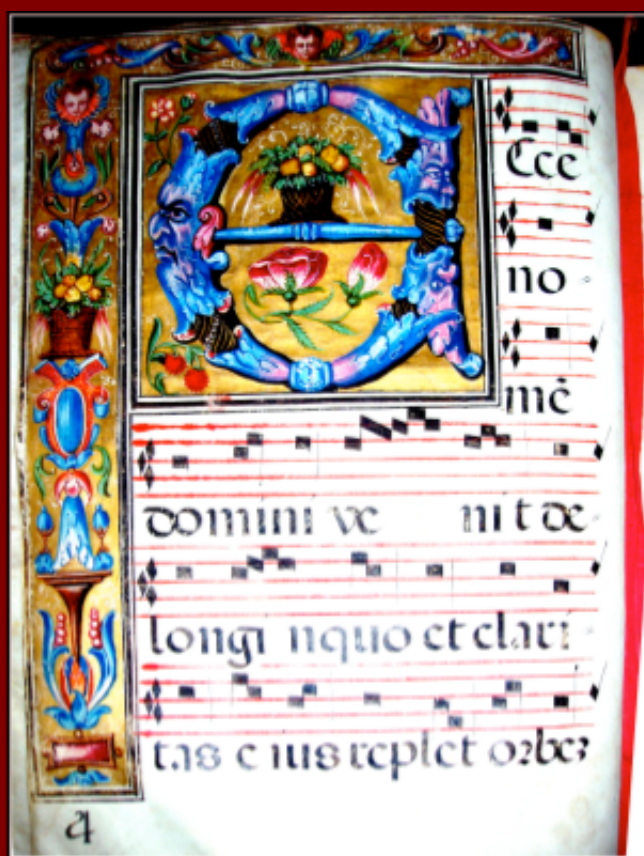 Ecce
no
mē
domini ve nit de
longi nquo et clari
tas e ius replet orbez